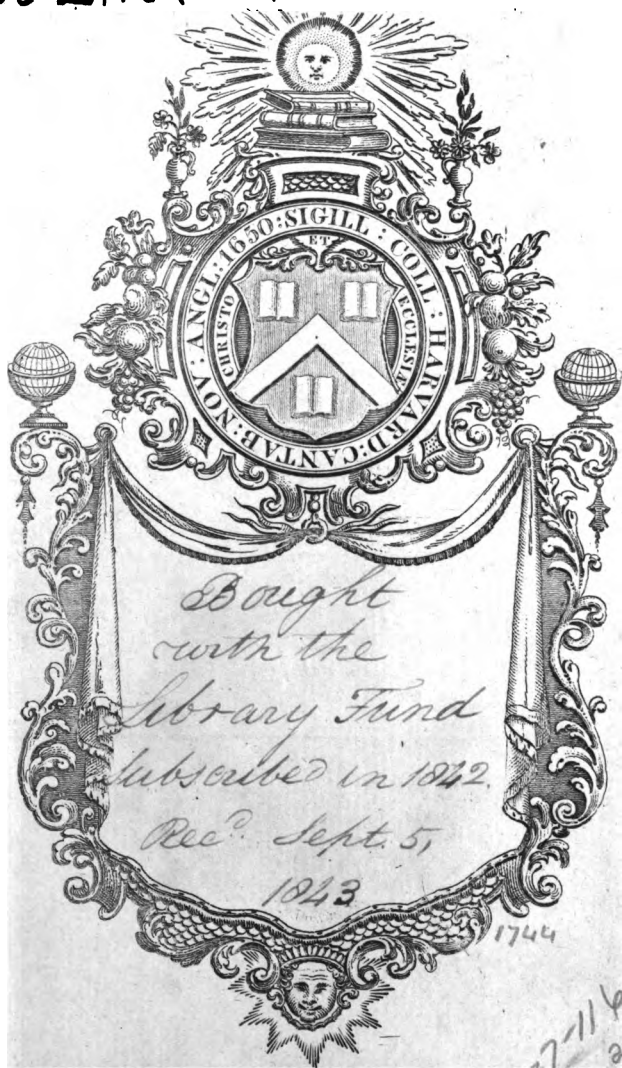 SIGILL : COLL : HARVARD : CANTAB : NOV : ANGL : 1650 :
ET
CHRISTO
ECCLESIÆ
Bought
with the
Library Fund
subscribed in 1842.
Recd. Sept. 5,
1843
1744